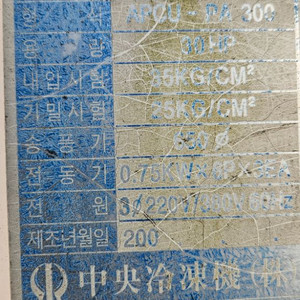 APCU - RA 300
30 HP
내압시험 45KG/CM²
기밀시험 25KG/CM²
송풍기 630 Ø
전동기 0.75KW x 6P x 3EA
전원 3/220V/380V 60HZ
제조년월일 200
中央冷凍機(株